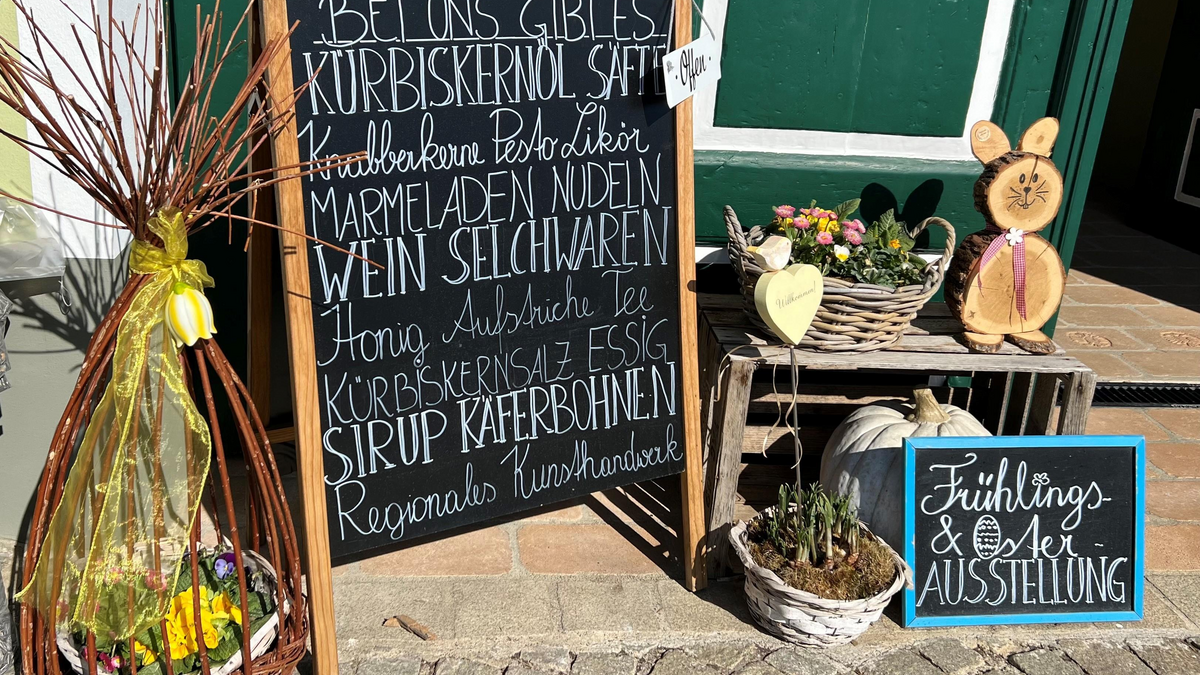 BEI UNS GIBT ES
KÜRBISKERNÖL SÄFTE
Knabberkerne Pesto Likör
MARMELADEN NUDELN
WEIN SELCHWAREN
Honig Aufstriche Tee
KÜRBISKERNSALZ ESSIG
SIRUP KÄFERBOHNEN
Regionales Kunsthandwerk
Offen
Willkommen
Frühlings-
& Oster-
AUSSTELLUNG